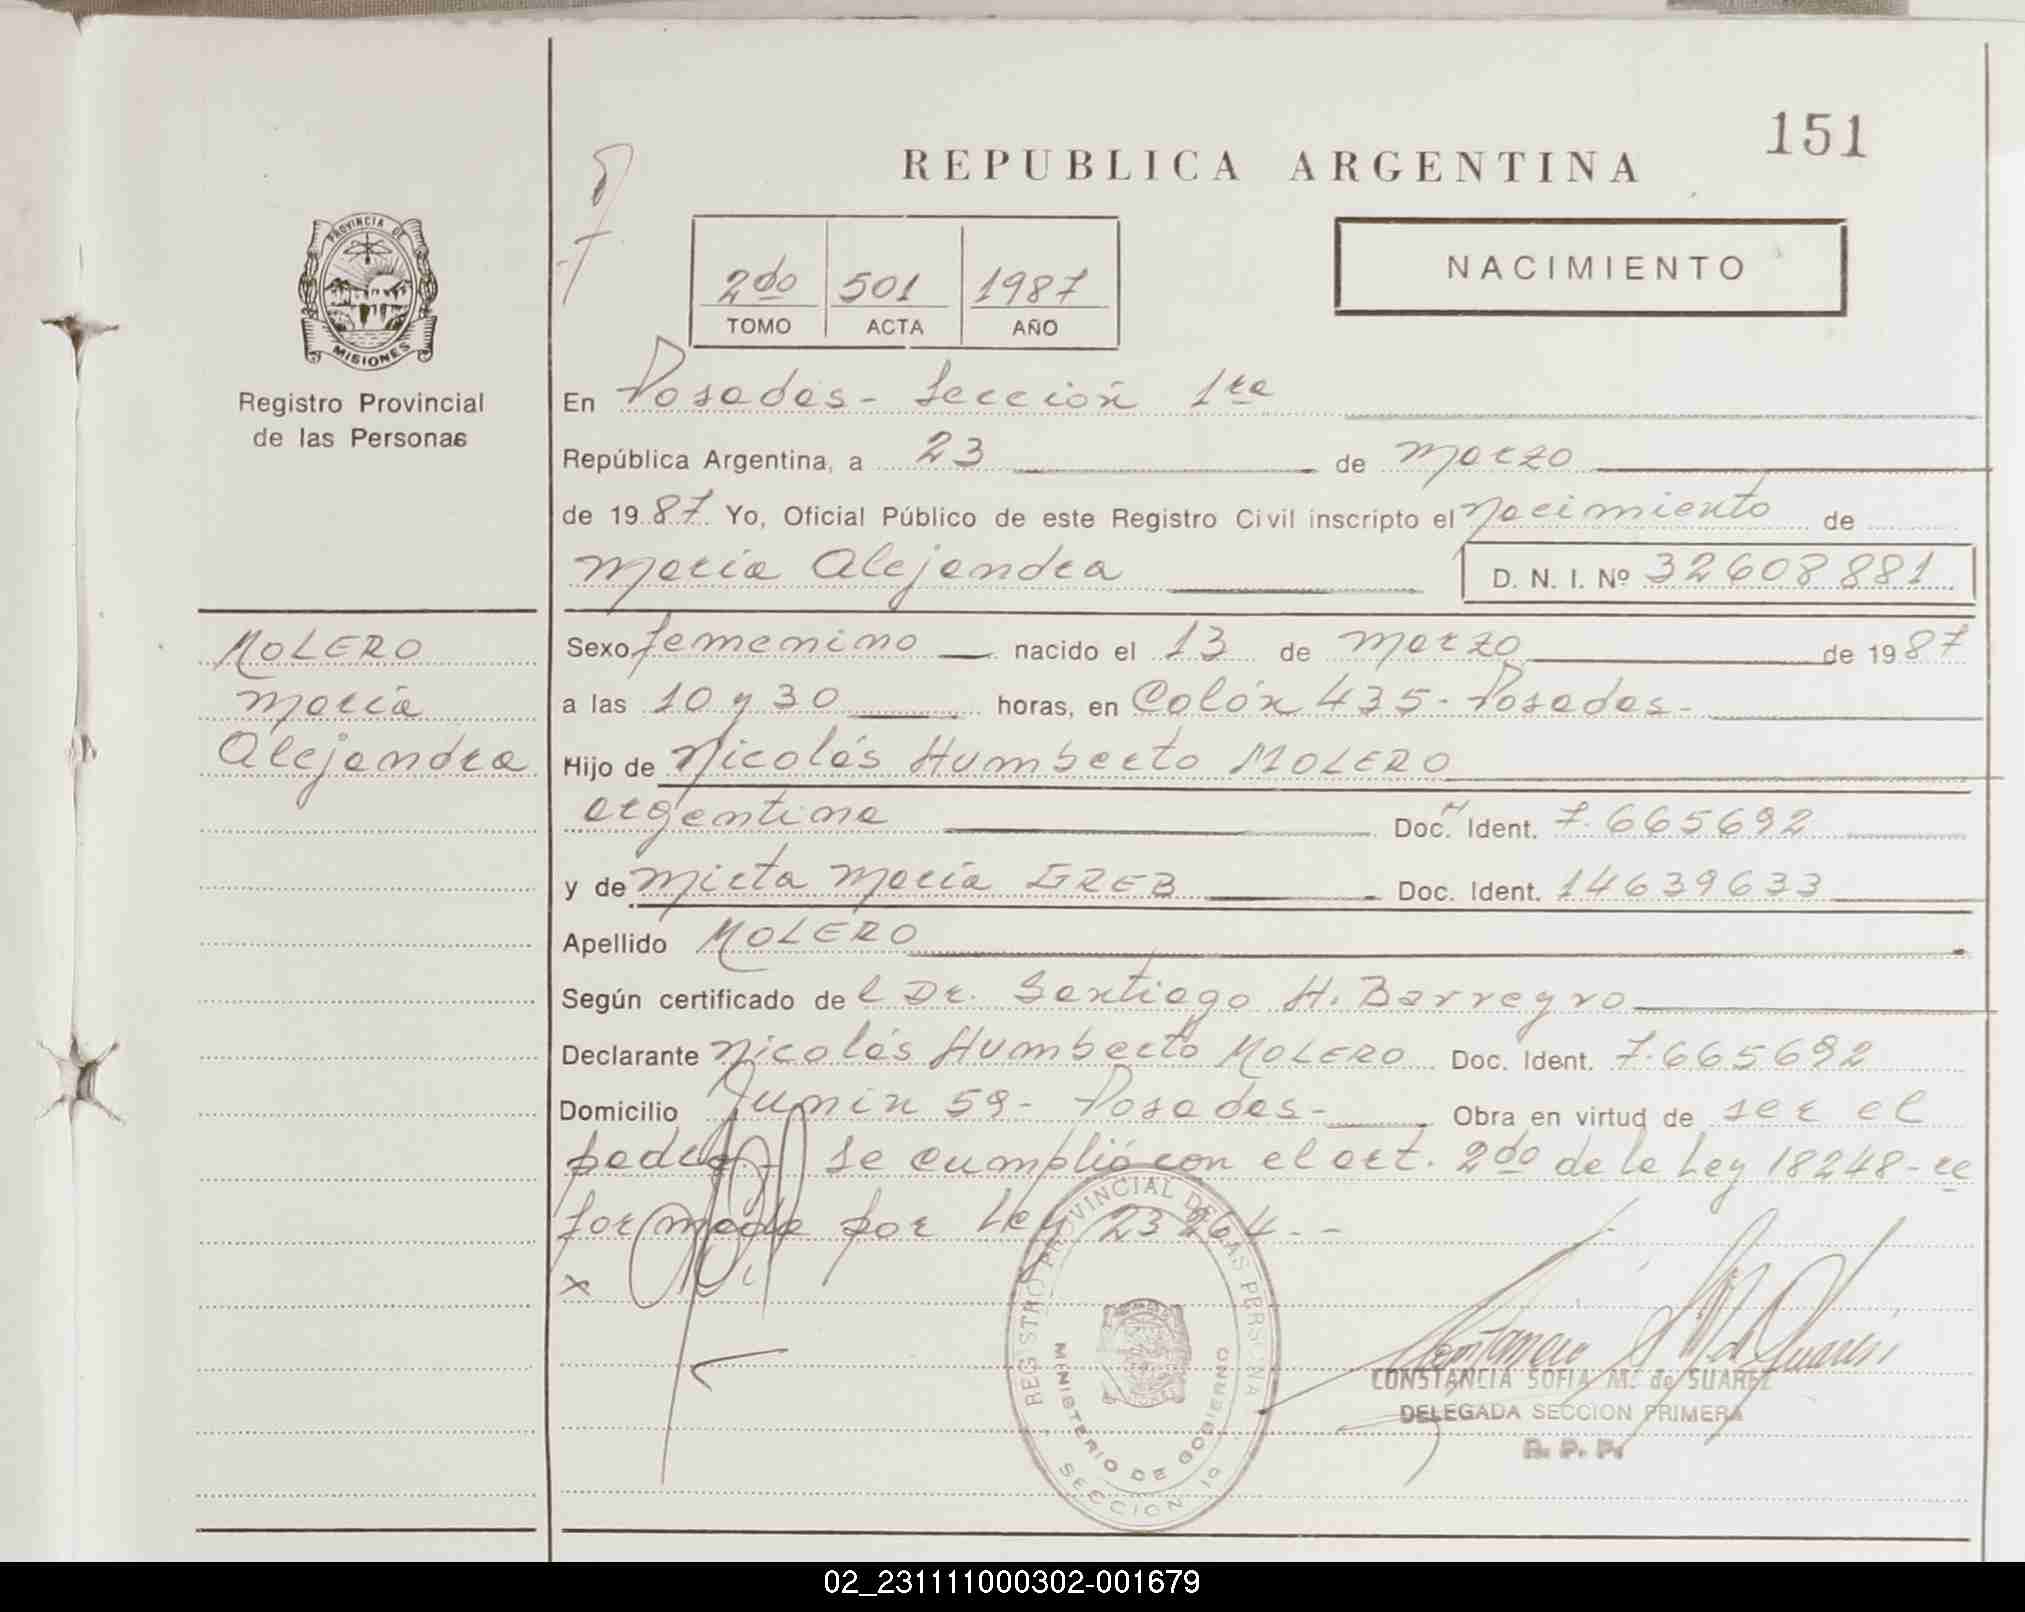 151
REPUBLICA ARGENTINA
NACIMIENTO
2do 501 1987
TOMO ACTA AÑO
PROVINCIA DE
MISIONES
Registro Provincial
de las Personas
En Posadas - Sección 1ra
República Argentina, a 23 de marzo
de 1987 Yo, Oficial Público de este Registro Civil inscripto el Nacimiento de
María Alejandra D. N. I. Nº 32608881
MOLERO
María
Alejandra
Sexo femenino nacido el 13 de marzo de 1987
a las 10 y 30 horas, en Colón 435 - Posadas -
Hijo de Nicolás Humberto MOLERO
argentina Doc. Ident. 7.665692
y de Mirta María GREB Doc. Ident. 14639633
Apellido MOLERO
Según certificado del Dr. Santiago H. Barreyro
Declarante Nicolás Humberto MOLERO Doc. Ident. 7.665692
Domicilio Junín 59 - Posadas - Obra en virtud de ser el
padre - Se cumplió con el art. 2do de la Ley 18248 - re
formada por Ley 23264 - -
x
REGISTRO PROVINCIAL DE LAS PERSONAS
MINISTERIO DE GOBIERNO
SECCION 1ª
CONSTANCIA SOFIA M. de SUAREZ
DELEGADA SECCION PRIMERA
R. P. P.
02_231111000302-001679